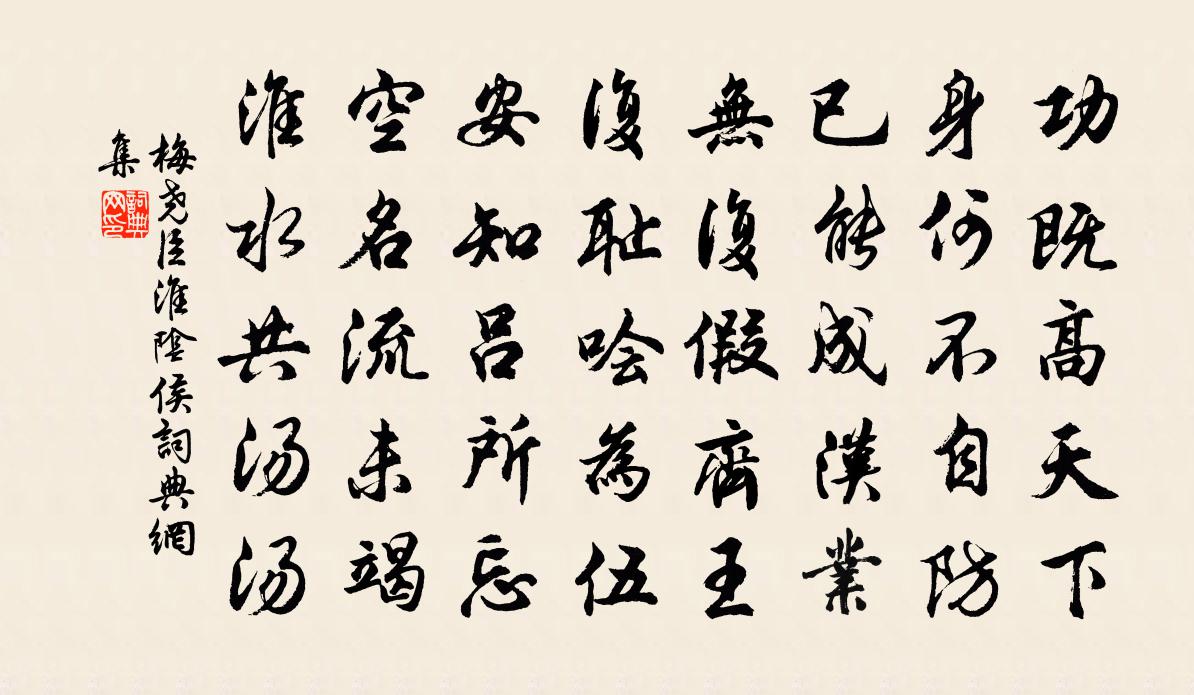 功既高天下
身何不自防
已能成漢業
無復假齊王
復恥噲為伍
安知呂所忘
空名流未竭
淮水共湯湯
梅堯臣淮陰侯詞典網
集
詞典
网印